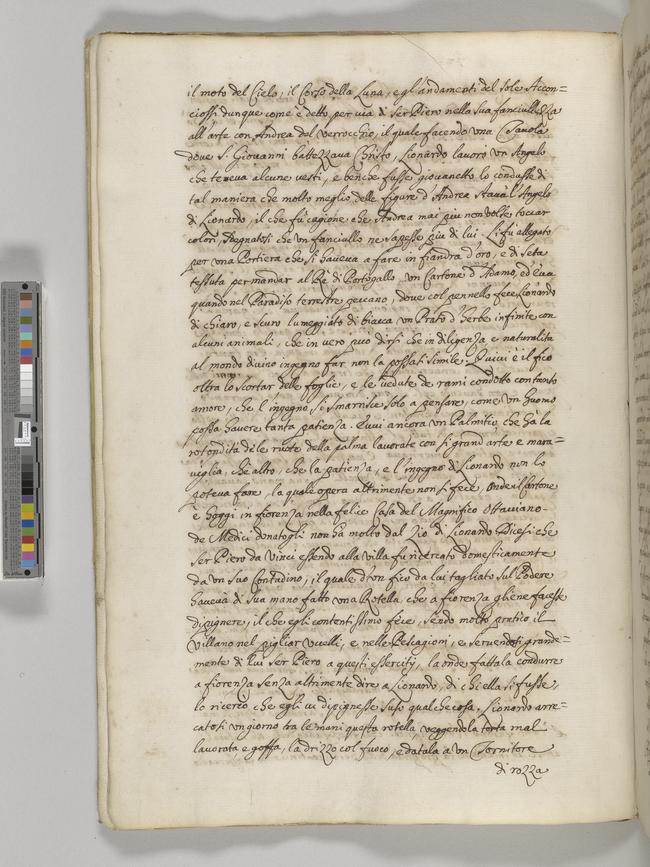 il moto del Cielo, il Corso della Luna, e gl'andamenti del sole Accon=
ciossi dunque come è detto per via di Ser Piero nella sua fanciullezza
all'arte con Andrea del Verrocchio, il quale facendo una Tavola
dove S. Giovanni battezzava Christo, Lionardo lavorò un Angelo
che teneva alcune vesti, e benche fusse giovanetto lo condusse di
tal maniera che molto meglio delle figure d'Andrea stava l'Angelo
di Lionardo, il che fù cagione che Andrea mai piu non volse toccar
colori, sdegnatosi che un fanciullo ne sapesse più di lui. Li fu allegato
per una Portiera che si haveva a fare in fiandra d'oro, e di seta
tessuta per mandar al Rè di Portogallo un Cartone d'Adamo, ed Eva
quando nel Paradiso terrestre peccano, dove col pennello fece Lionardo
di chiaro, e scuro lumeggiato di biacca un Prato d'herbe infinite con
alcuni animali, che in vero può dirsi che in diligenza e naturalità
al mondo divino ingegno far non la possa si simile. Quivi è il fico
oltra lo scortar delle foglie, e le vedute de rami condotto con tanto
amore, che l'ingegno si smarrisce solo a pensare, come un huomo
possa havere tanta patienza. Evvi ancora un Palmitio, che hà la
rotondità dele ruote della palma lavorate con si grand'arte e mara=
viglia, che altro, che la patienza, e l'ingegno di Lionardo non lo
poteva fare, la quale opera altrimente non si fece, onde il Cartone
è hoggi in fiorenza nella felice Casa del Magnifico Ottaviano
de Medici donatogli non ha molto dal Zio di Lionardo Dicesi che
Ser Piero da Vinci essendo alla villa fu ricercato domesticamente
da un suo Contadino, il quale d'un fico da lui tagliato sul Podere
haveva di sua mano fatto una Rotella che a fiorenza gliene facesse
dipignere, il che egli contentissimo fece, sendo molto pratico il
Villano nel pigliar uccelli, e nelle Pescagioni, e servendosi grande=
mente di lui Ser Piero a questi essercitij, la onde fattala condurre
a fiorenza senza altrimente dire a Lionardo, di ch'ella si fusse,
lo ricercò che egli vi dipignesse suso qualche cosa. Lionardo arre=
catosi un giorno tra le mani questa rotella veggendola torta mal
lavorata, e goffa, la drizzò col fuoco, e datala a un Tornitore
di rozza